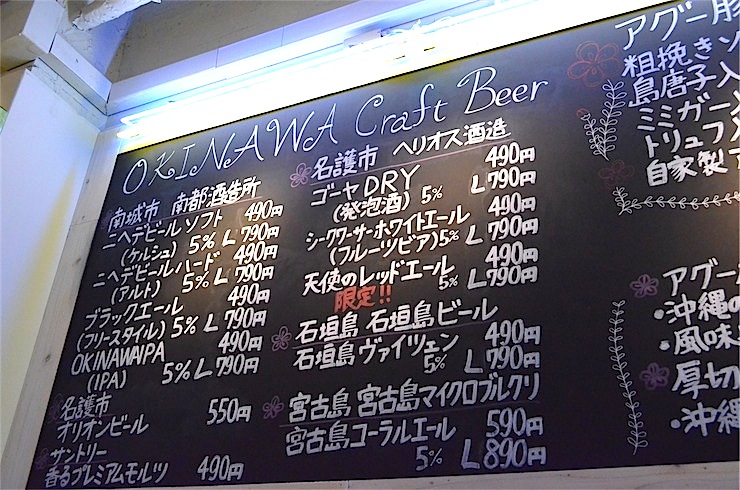 OKINAWA Craft Beer
南城市 南都酒造所
ニヘデビール ソフト 490円
(ケルシュ) 5% L 790円
ニヘデビールハード 490円
(アルト) 5% L 790円
ブラックエール 490円
(フリースタイル) 5% L 790円
OKINAWAIPA 490円
(IPA) 5% L 790円
名護市
オリオンビール 550円
サントリー
香るプレミアムモルツ 490円
名護市 ヘリオス酒造
ゴーヤDRY 490円
(発泡酒) 5% L 790円
シークワーサーホワイトエール 490円
(フルーツビア) 5% L 790円
天使のレッドエール 490円
限定!! 5% L 790円
石垣島 石垣島ビール
石垣島ヴァイツェン 490円
5% L 790円
宮古島 宮古島マイクロブルワリ
宮古島コーラルエール 590円
5% L 890円
アグー豚
粗挽きソ
島唐子入
ミミガー
トリュフ
自家製
アグー
・沖縄の
・風味
厚切
・沖縄